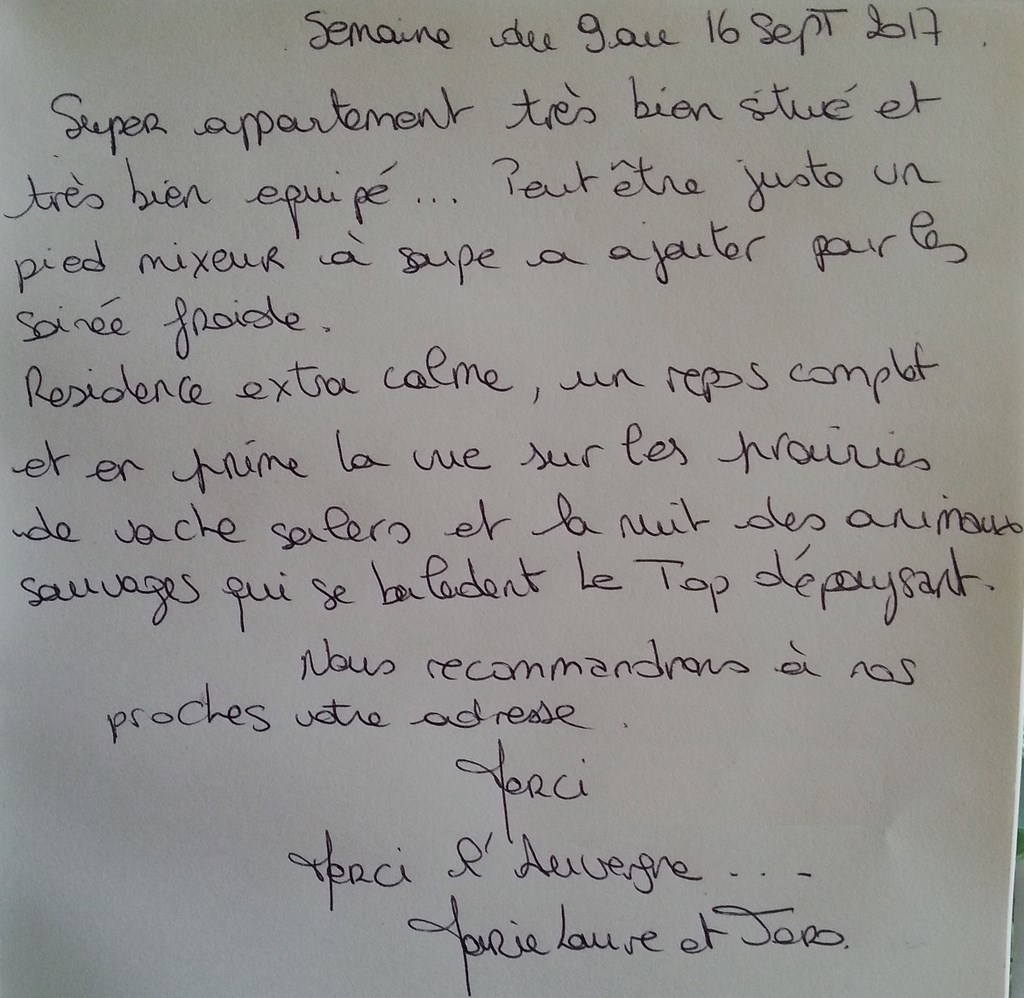 Semaine du 9 au 16 Sept 2017.
Super appartement très bien situé et
très bien equipé... Peut être juste un
pied mixeur à soupe a ajouter pour les
soirée froide.
Residence extra calme, un repos complet
et en prime la vue sur les prairies
de vache salers et la nuit des animaux
sauvages qui se baladent Le Top dépaysant.
Nous recommandrons à nos
proches votre adresse.
Merci
Merci l'Auvergne ...-
Marie Laure et